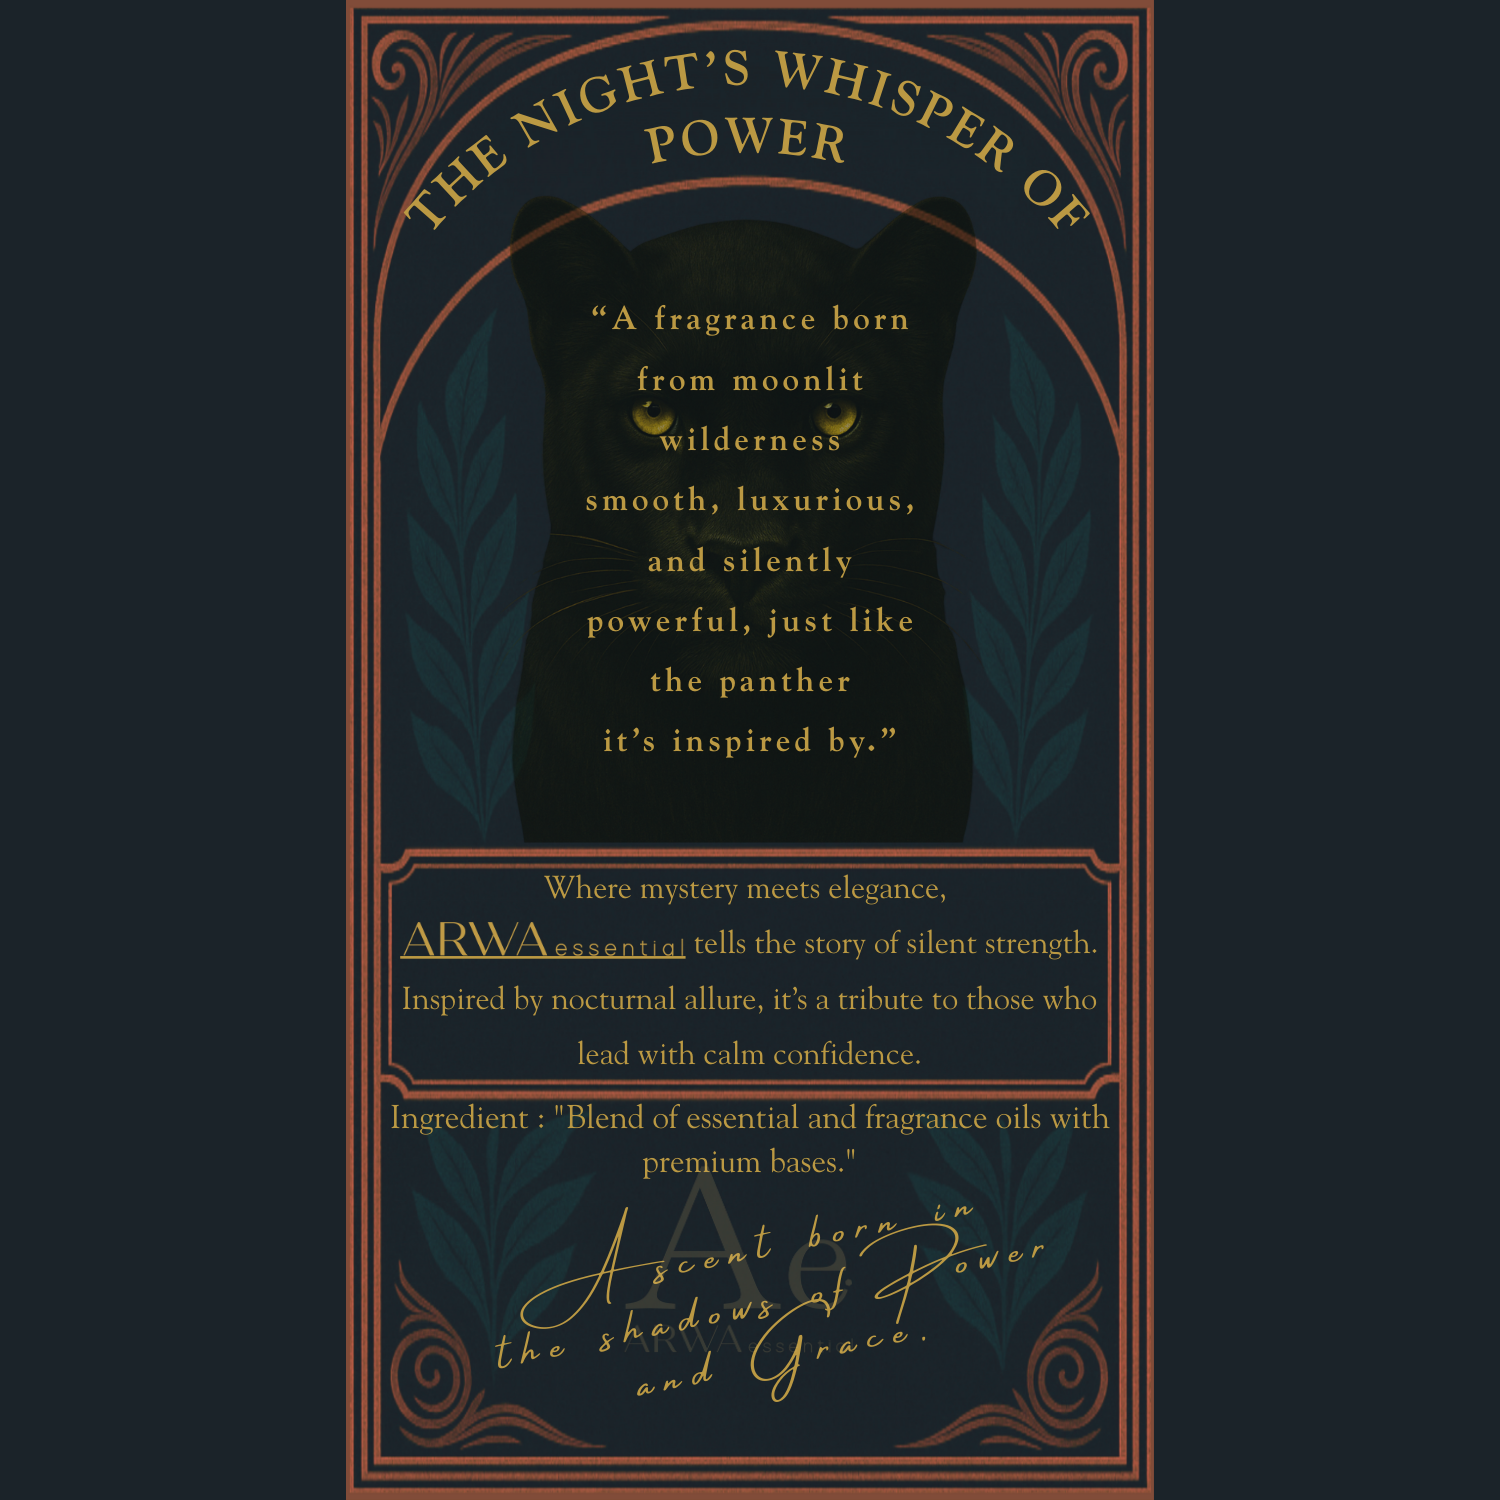 THE NIGHT’S WHISPER OF
POWER
“A fragrance born
from moonlit
wilderness
smooth, luxurious,
and silently
powerful, just like
the panther
it’s inspired by.”
Where mystery meets elegance,
ARWA essential tells the story of silent strength.
Inspired by nocturnal allure, it’s a tribute to those who
lead with calm confidence.
Ingredient : "Blend of essential and fragrance oils with
premium bases."
Ae
ARWA essential
A scent born in
the shadows of Power
and Grace.